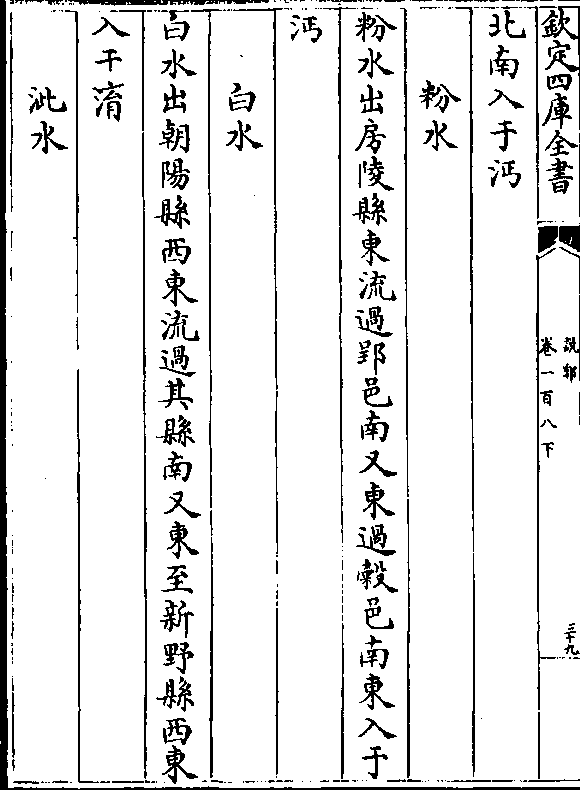 欽定四庫全書
說郛
卷一百八下
三十九
北南入于沔
粉水
粉水出房陵縣東流過郢邑南又東過穀邑南東入于
沔
白水
白水出朝陽縣西東流過其縣南又東至新野縣西東
入于淯
沘水